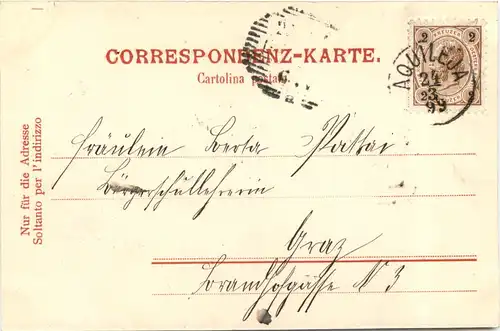 CORRESPONDENZ-KARTE.
Cartolina postale
2 KREUZER 2
AQUILEJA
24
3
99
Nur für die Adresse
Soltanto per l'indirizzo
Fräulein Berta Pattai
Bürgerschullehrerin
Graz
Brandhofgasse N 3